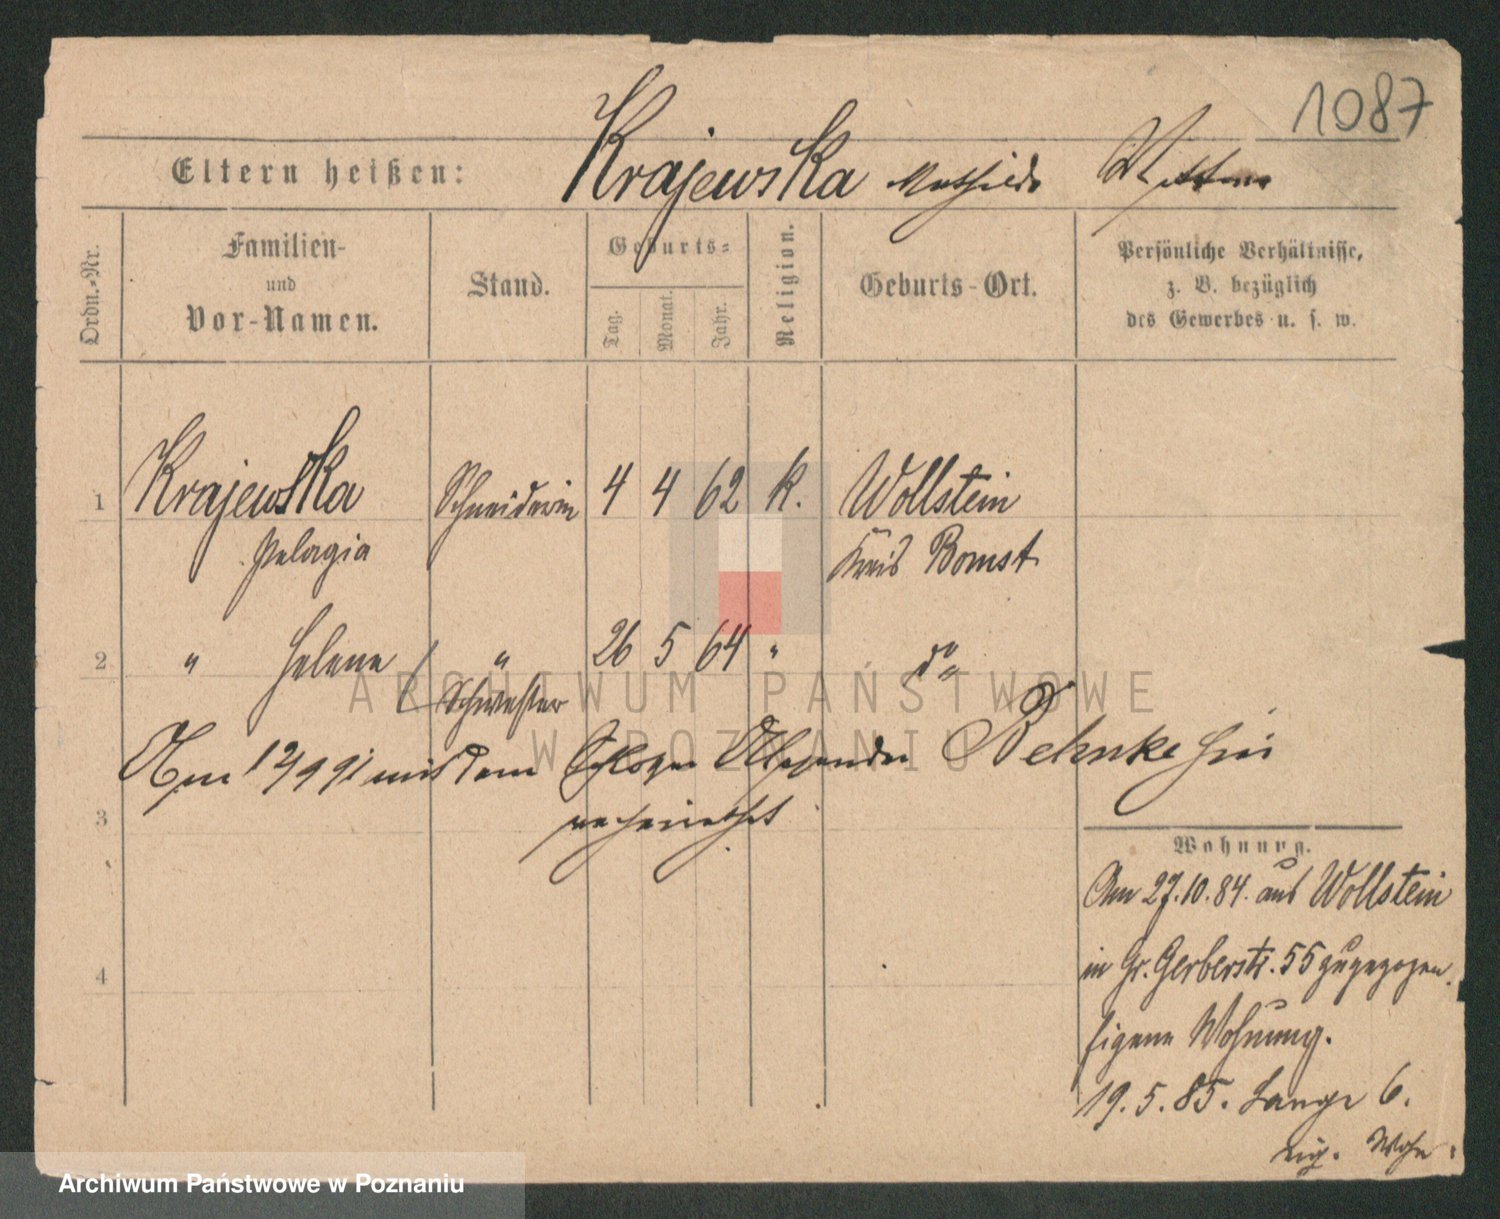 1087
Eltern heißen: Krajewska Mathilde Wittwe
Ordn.-Nr.
Familien-
und
Vor-Namen.
Stand.
Geburts=
Tag.
Monat.
Jahr.
Religion.
Geburts-Ort.
Persönliche Verhältnisse,
z. B. bezüglich
des Gewerbes u. s. w.
1 Krajewska Schneiderin 4 4 62 k. Wollstein
Pelagia Kreis Bomst
2 " Helene " 26 5 64 " do
Schwester
Am mit dem Behnke hier
verheirathet
3
Wohnung.
Am 27.10.84. aus Wollstein
in Gr. Gerberstr. 55 zugezogen.
Eigene Wohnung.
4
19.5.85. Lange 6.
eig. Wohn.
ARCHIWUM PAŃSTWOWE
W POZNANIU
Archiwum Państwowe w Poznaniu